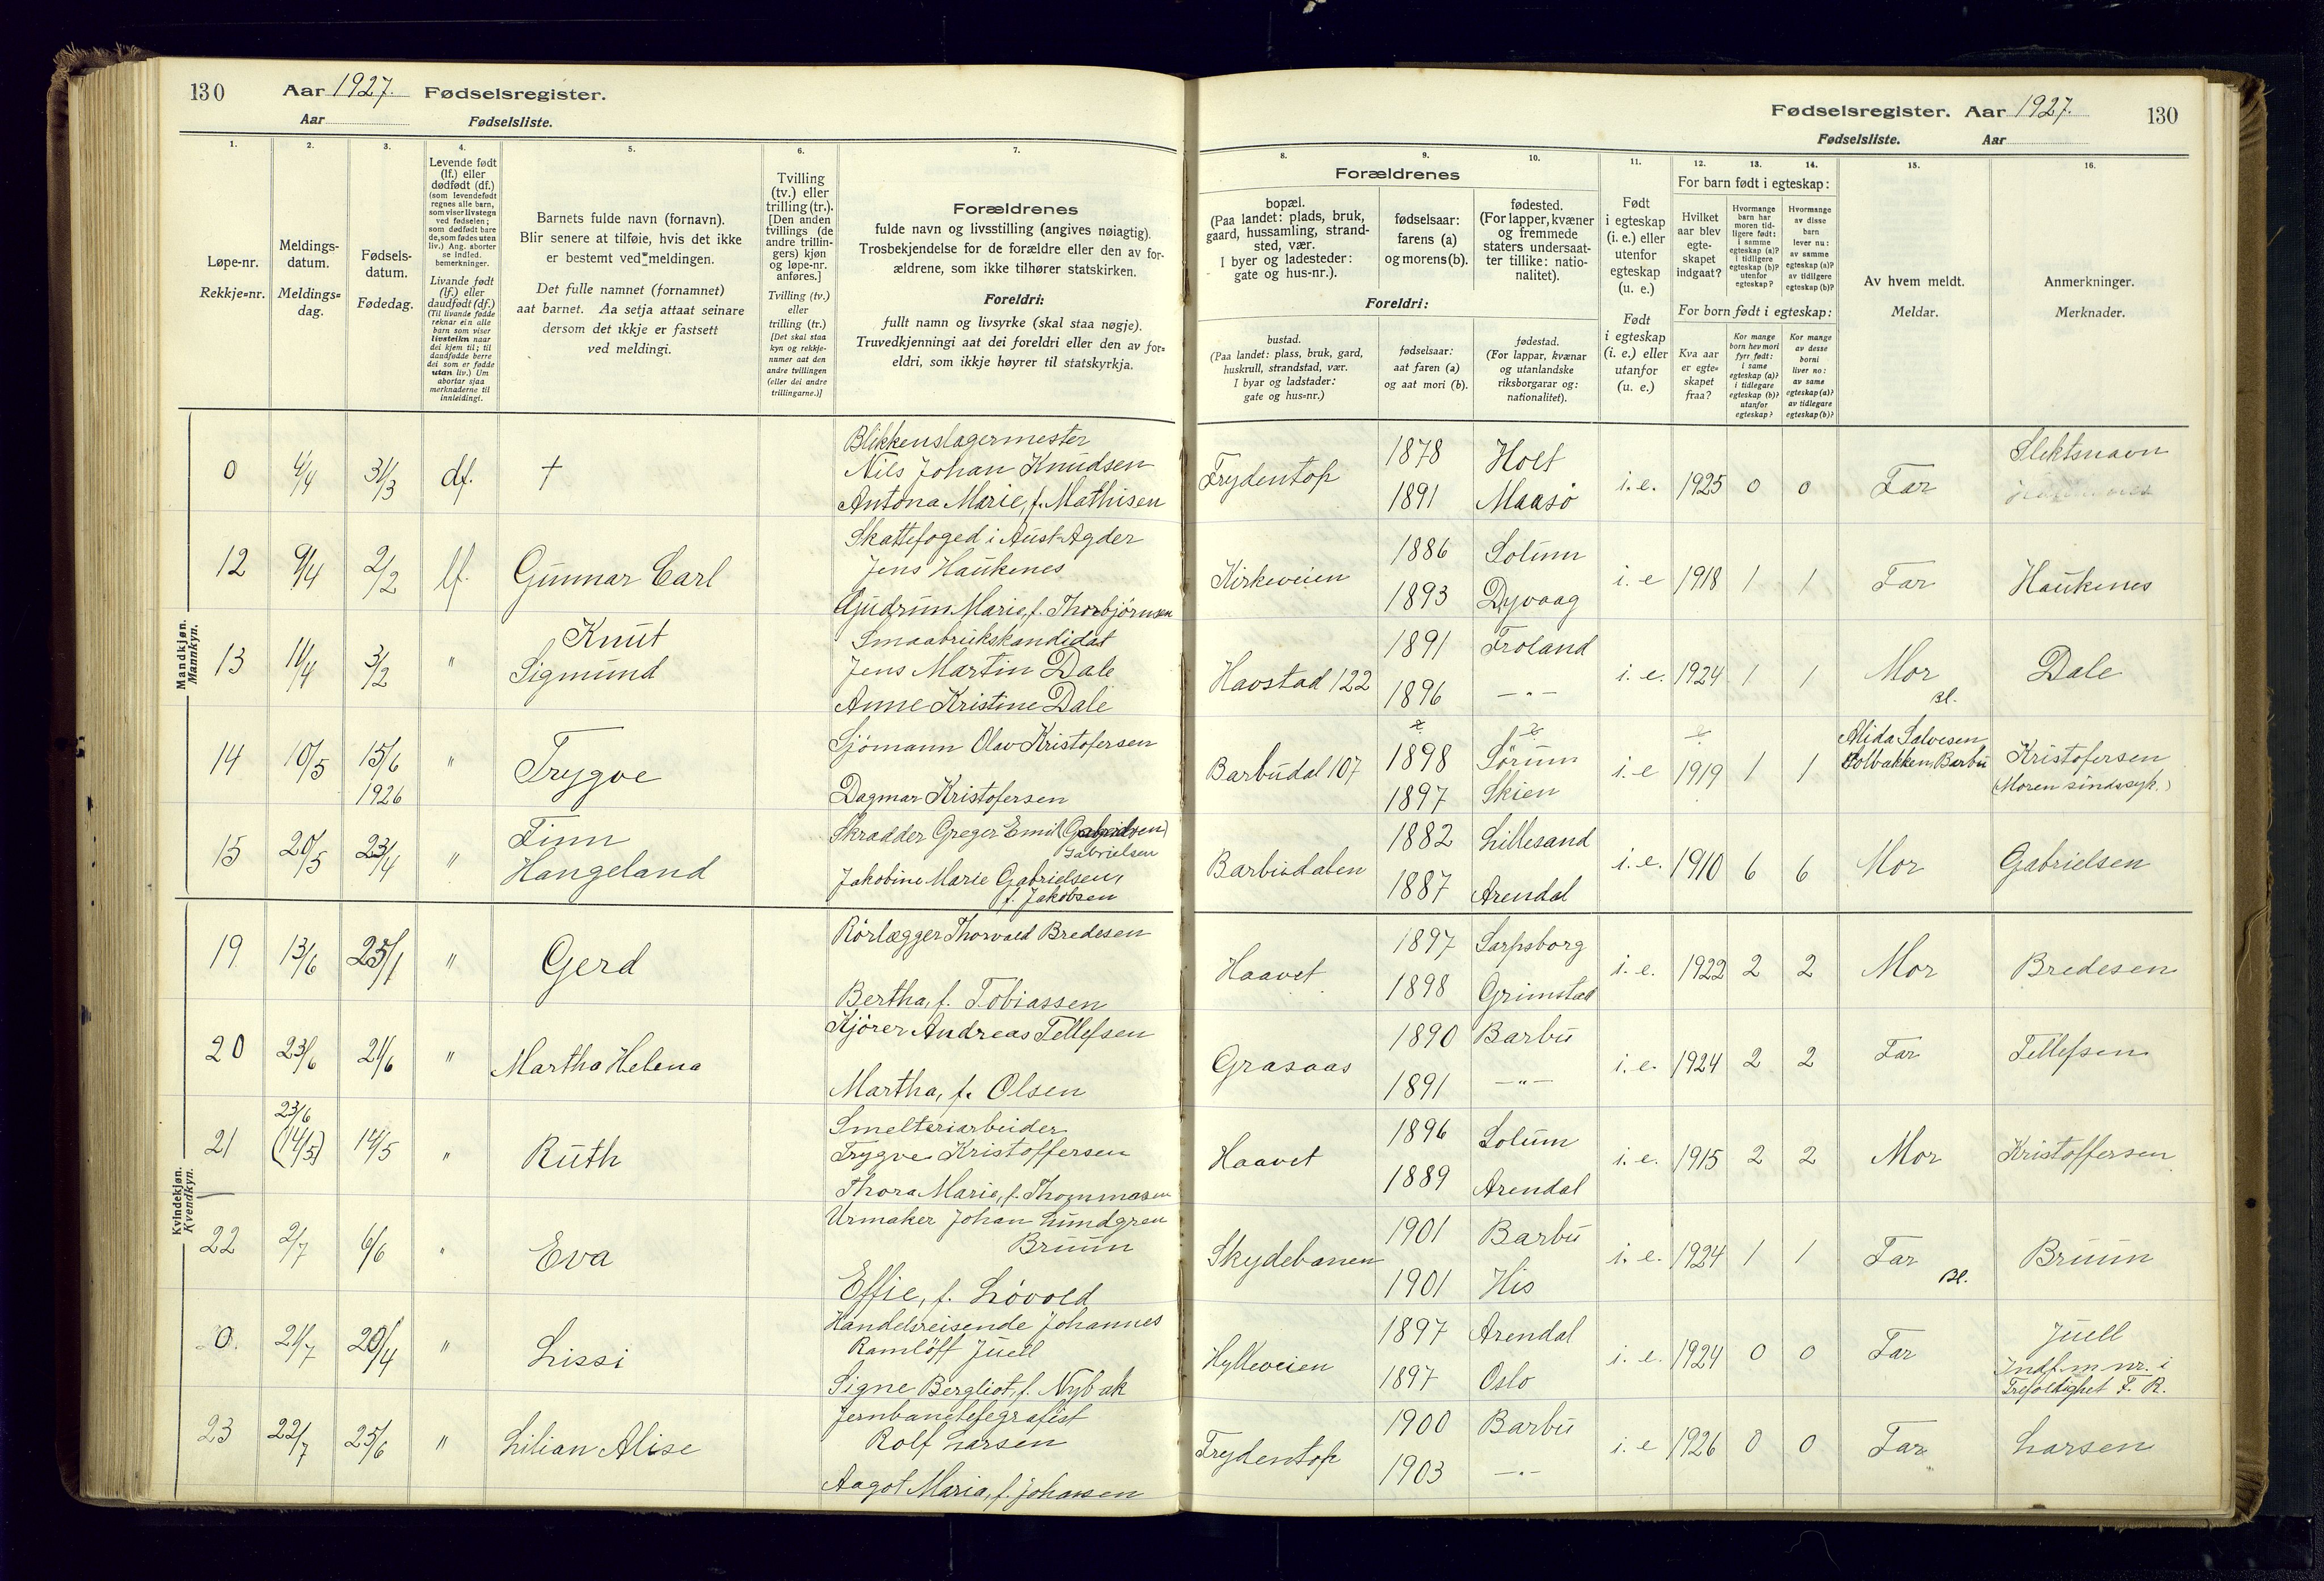 130 Aar 1927. Fødselsregister.
Aar Fødselsliste.
Fødselsregister. Aar 1927. 130
Fødselsliste. Aar
1. 2. 3. 4. 5. 6. 7.
Løpe-nr.
Rekkje=nr.
Meldings-
datum.
Meldings=
dag.
Fødsels-
datum.
Fødedag.
Levende født
(lf.) eller
dødfødt (df.)
(som levendefødt
regnes alle barn,
som viser livstegn
ved fødselen;
som dødfødt bare
de, som fødes uten
liv.) Ang. aborter
se indled.
bemerkninger.
Livande født
(lf.) eller
daudfødt (df.)
(Til livande fødde
reknar ein alle
barn som viser
livsteikn naar
dei kjem til; til
daudfødde berre
dei som er fødde
utan liv.) Um
abortar sjaa
merknaderne til
innleidingi.
Barnets fulde navn (fornavn).
Blir senere at tilføie, hvis det ikke
er bestemt ved meldingen.
Det fulle namnet (fornamnet)
aat barnet. Aa setja attaat seinare
dersom det ikkje er fastsett
ved meldingi.
Tvilling
(tv.) eller
trilling (tr.).
[Den anden
tvillings (de
andre trillin-
gers) kjøn
og løpe-nr.
anføres.]
Tvilling (tv.)
eller
trilling (tr.)
[Det skal staa
kyn og rekkje-
numer aat den
andre tvillingen
(eller dei andre
trillingarne.)]
Forældrenes
fulde navn og livsstilling (angives nøiagtig).
Trosbekjendelse for de forældre eller den av for-
ældrene, som ikke tilhører statskirken.
Foreldri:
fullt namn og livsyrke (skal staa nøgje).
Truvedkjenningi aat dei foreldri eller den av for=
eldri, som ikkje høyrer til statskyrkja.
8. 9. 10. 11. 12. 13. 14. 15. 16.
Forældrenes
bopæl.
(Paa landet: plads, bruk,
gaard, hussamling, strand-
sted, vær.
I byer og ladesteder:
gate og hus-nr.).
fødselsaar:
farens (a)
og morens (b).
fødested.
(For lapper, kvæner
og fremmede
staters undersaat-
ter tillike: natio-
nalitet).
Foreldri:
bustad.
(Paa landet: plass, bruk, gard,
huskrull, strandstad, vær.
I byar og ladstader:
gate og hus=nr.)
fødselsaar:
aat faren (a)
og aat mori (b).
fødestad.
(For lappar, kvænar
og utanlandske
riksborgarar og:
nationalitet).
Født
i egteskap
(i. e.) eller
utenfor
egteskap
(u. e.)
Født
i egteskap
(i. e.) eller
utanfor
(u. e.)
For barn født i egteskap:
Hvilket
aar blev
egte-
skapet
indgaat?
Hvormange
barn har
moren tid-
ligere født:
i samme
egteskap (a)?
i tidligere
egteskap (b)?
utenfor
egteskap?
Hvormange
av disse
barn
lever nu:
av samme
egteskap (a)?
av tidligere
egteskap (b)?
For born født i egteskap:
Kva aar
er egte=
skapet
fraa?
Kor mange
born hev mori
fyrr født:
i same
egteskap (a)?
i tidlegare
egteskap (b)?
utanfor
egteskap?
Kor mange
av desse
borni
liver no:
av same
egteskap (a)?
av tidlegare
egteskap (b)?
Av hvem meldt.
Meldar.
Anmerkninger.
Merknader.
Mandkjøn.
Mannkyn.
Blikkenslagermester
0 4/4 31/3 df. † Nils Johan Knudsen
Antona Marie, f. Mathisen
Frydentop 1878 Holt 1891 Maasö i. e. 1925 0 0 Far Slektsnavn
Skattefoged i Aust-Agder
12 9/4 2/2 lf. Gunnar Carl Jens Haukenes
Gudrun Marie, f. Thorbjörnsen
Kirkeveien 1886 Solum 1893 Dyvaag i. e 1918 1 1 Far Haukenes
Knut Smaabrukskandidat
13 11/4 3/2 " Sigmund Jens Martin Dale
Anne Kristine Dale
Havstad 122 1891 Froland 1896 —"— i. e. 1924 1 1 Mor Bl. Dale
Sjömann Olav Kristofersen
14 10/5 15/6 1926 " Trygve
Dagmar Kristofersen
Barbudal 107 1898 Sörum 1897 Skien i. e 1919 1 1 Alida Salvesen
Solbakken, Barbu Kristofersen
(Moren sindssyk.)
Finn Skrædder Greger Emil (Gabrielsen)
Gabrielsen
15 20/5 23/4 " Hangeland Jakobine Marie Gabrielsen,
f. Jakobsen
Barbudalen 1882 Lillesand 1887 Arendal i. e. 1910 6 6 Mor Gabrielsen
Kvindekjøn.
Kvendkyn.
Rörlægger Thorvald Bredesen
19 13/6 25/1 " Gerd
Bertha, f. Tobiassen
Haavet 1897 Sarpsborg 1898 Grimstad i. e. 1922 2 2 Mor Bredesen
Kjörer Andreas Tellefsen
20 23/6 21/6 " Martha Helena
Martha, f. Olsen
Grasaas 1890 Barbu 1891 —"— i. e. 1924 2 2 Far Tellefsen
23/6 Smelteriarbeider
21 (14/5) 14/5 " Ruth Trygve Kristoffersen
Thora Marie, f. Thommasen
Haavet 1896 Solum 1889 Arendal i. e. 1915 2 2 Mor Kristoffersen
Urmaker Johan Lundgren
Bruun
22 2/7 6/6 " Eva
Effie, f. Lövold
Skydebanen 1901 Barbu 1901 His i. e. 1924 1 1 Far Bl. Bruun
Handelsreisende Johannes
0. 21/7 20/4 " Lissi Ramlöff Juell
Signe Bergliot, f. Nybak
Hylleveien 1897 Arendal 1897 Oslo i. e. 1924 0 0 Far Juell
Indf. m. nr. i
Trefoldighet F. R.
Jernbanetelegrafist
23 22/7 25/6 " Lilian Alise Rolf Larsen
Aagot Maria, f. Johansen
Frydentop 1900 Barbu 1903 —"— i. e 1926 0 0 Far Larsen